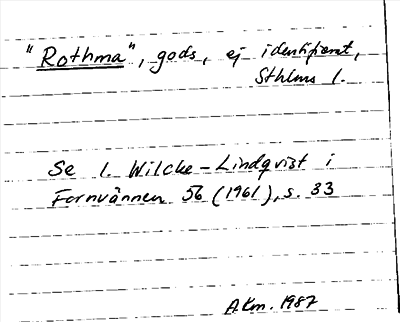 "Rothma", gods, ej identifierat,
Sthlms l.
Se I. Wilcke-Lindqvist i
Fornvännen 56 (1961), s. 33
A.Km. 1987